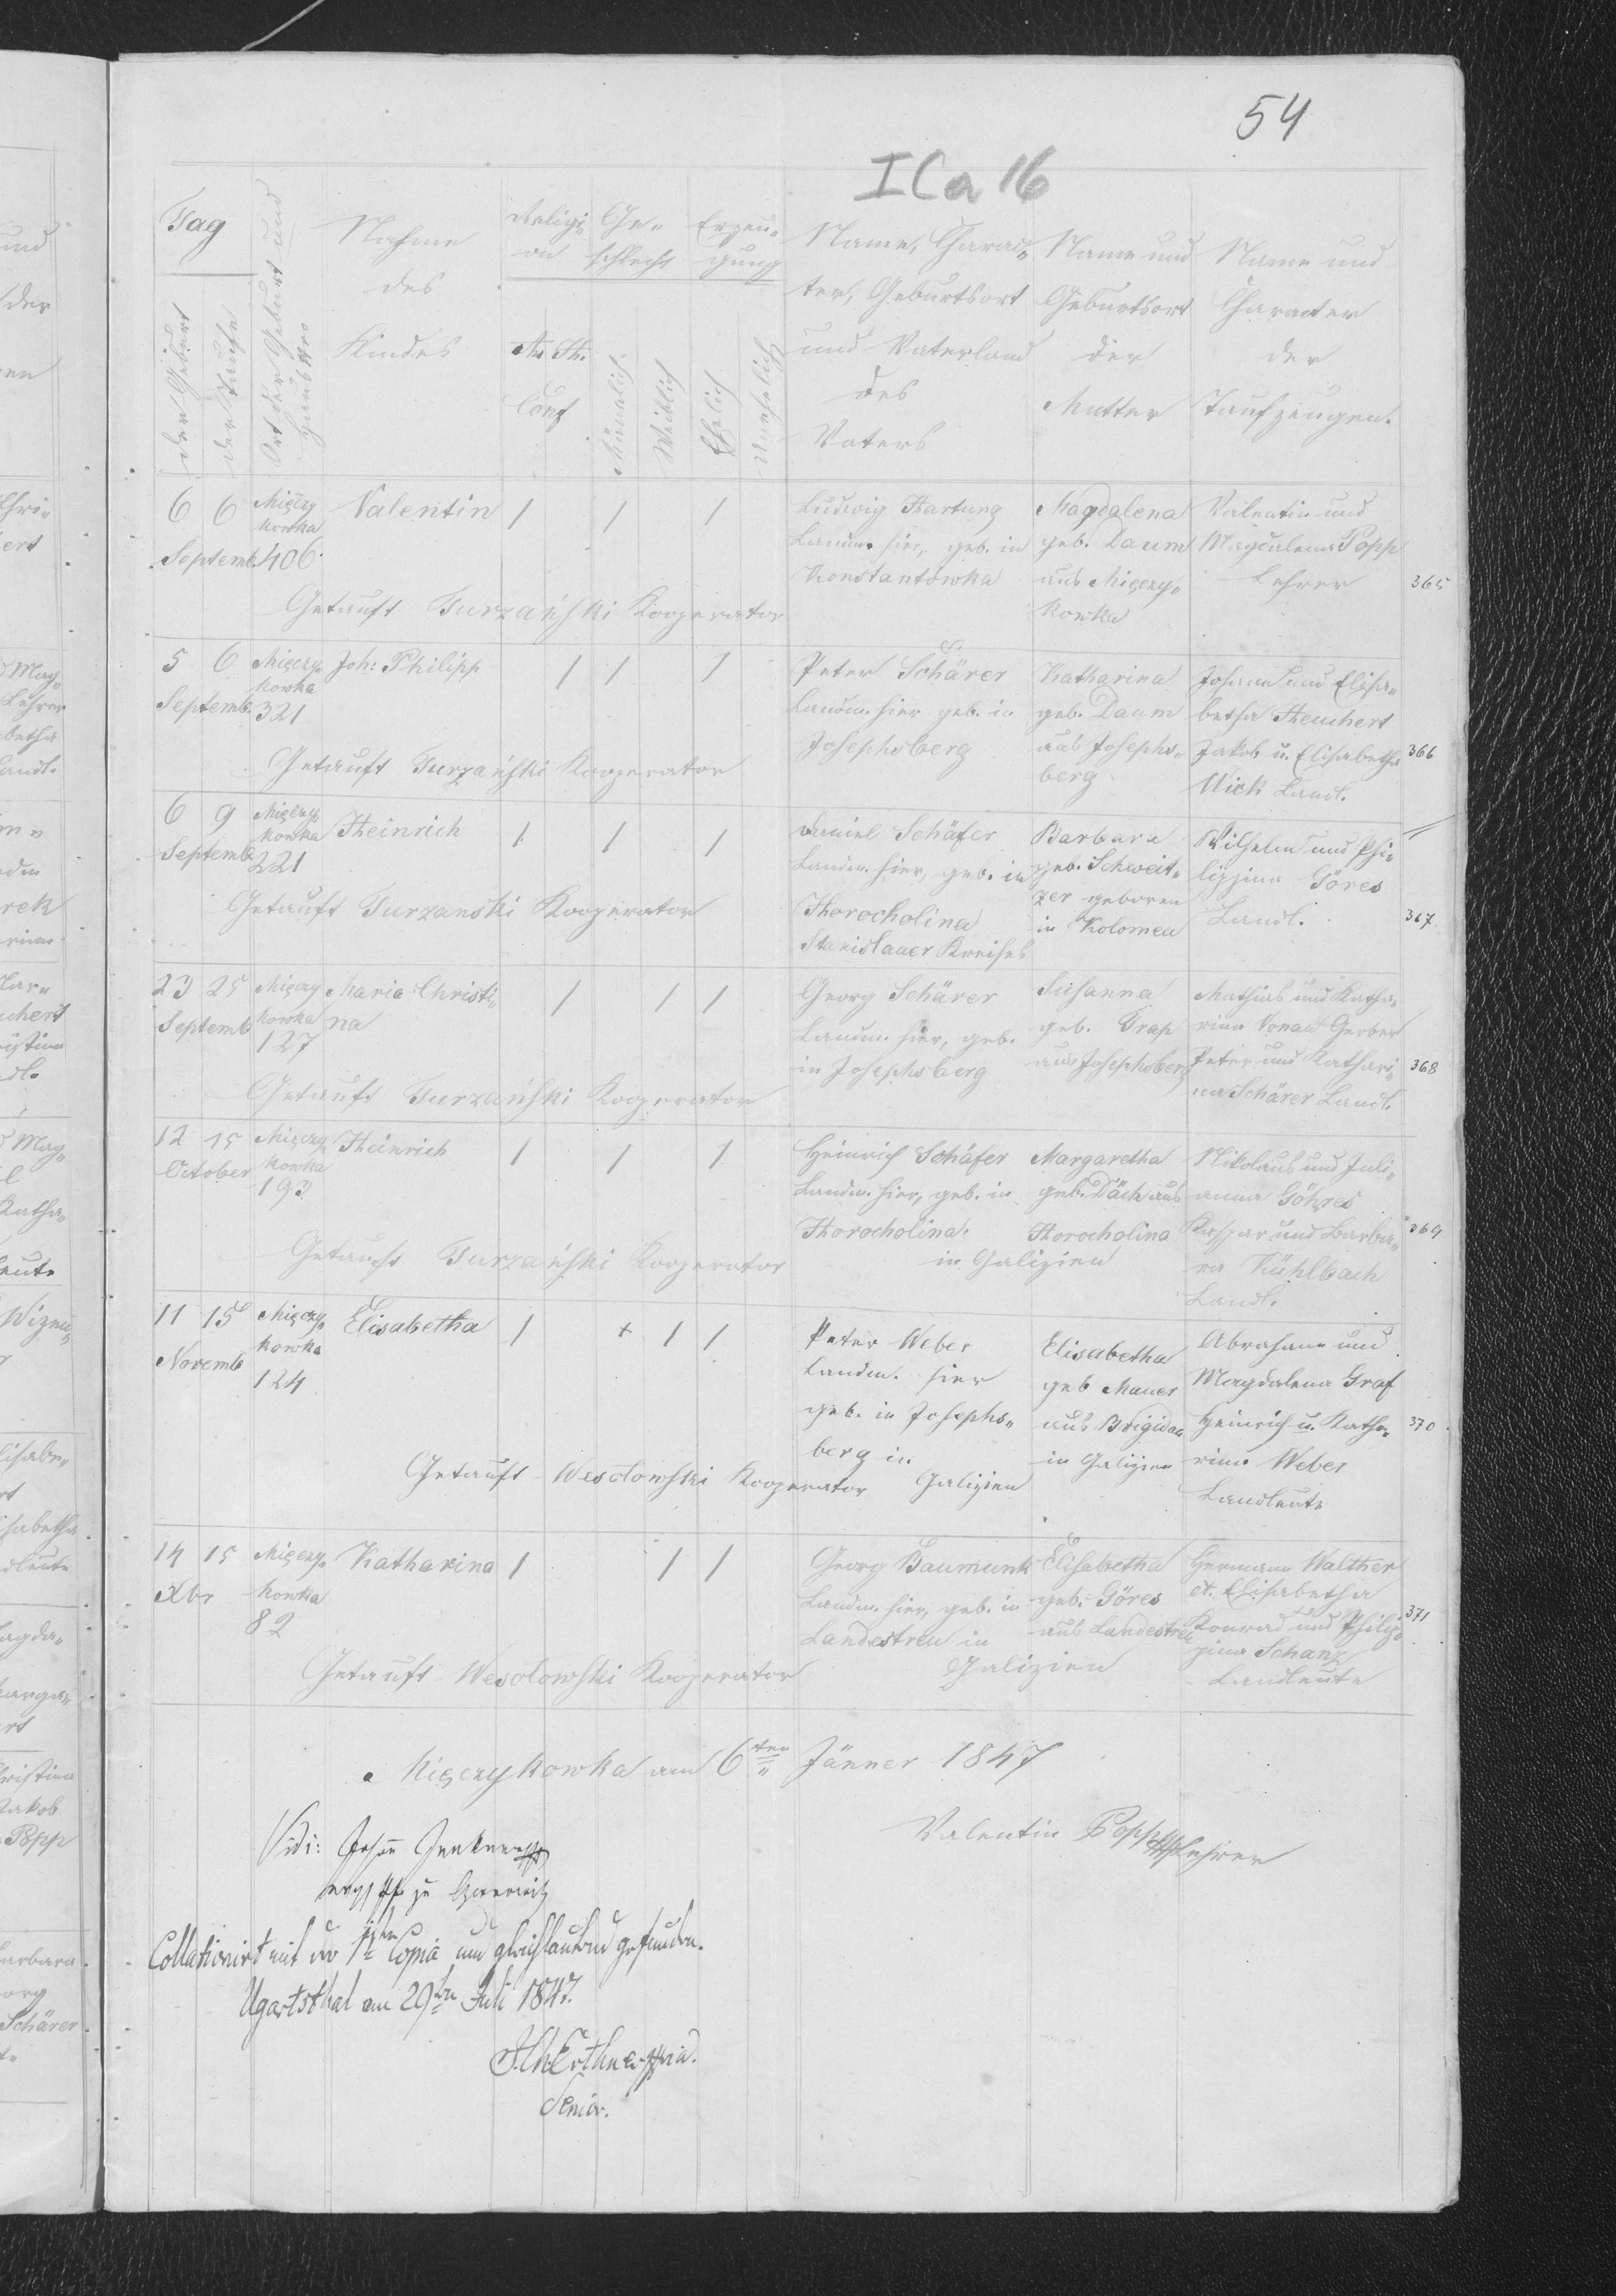 54
I Ca 16
Tag
der Geburt
der Taufe
Ort der Geburt und
Haus Nro
Nahme
des
Kindes
Religi-
on
A. H.
Conf
Ge-
schlecht
Männlich
Weiblich
Erzeu-
gung
Ehelich
Unehelich
Name, Charac-
ter, Geburtsort
und Vaterland
des
Vaters
Name und
Geburtsort
der
Mutter
Name und
Character
der
Taufzeugen.
6 6 Mięczy
kowka
Septemb. 406.
Valentin / / /
Ludwig Hartung
Landm. hier, geb. in
Konstantowka
Magdalena
geb. Daum
aus Mięczy-
kowka
Valentin und
Magdalena Popp
Lehrer 365
Getauft Turzański Kooperator
5 6 Mięczy-
kowka
Septemb. 321
Joh: Philipp / / /
Peter Schärer
Landm. hier geb. in
Josephsberg
Katharina
geb. Daum
aus Josephs-
berg
Johann und Elisa-
betha Heuchert
Jakob u. Elisabetha 366
Wick Landl.
Getauft Turzański Kooperator
6 9 Mięczy-
kowka
Septemb. 221
Heinrich / / /
Daniel Schäfer
Landm. hier, geb. in
Horocholina
Stanislauer Kreises
Barbara
geb. Schweit-
zer geboren
in Kolomea
Wilhelm und Phi-
lippina Göres
Landl. 367
Getauft Turzanski Kooperator
23 25 Mięczy
kowka
Septemb 127
Maria Christi-
na / / /
Georg Schärer
Landm. hier, geb.
in Josephsberg
Susanna
geb. Trap
aus Josephsberg
Mathias und Katha-
rina Vonau Gerber
Peter und Kathari- 368
na Schärer Landl.
Getauft Turzański Kooperator
12 15 Mięczy-
kowka
October 193
Heinrich / / /
Heinrich Schäfer
Landm. hier, geb. in
Horocholina.
Margaretha
geb. Däch aus
Horocholina
in Galizien
Nikolaus und Juli-
anna Göhres
Kaspar und Barba- 369
ra Kühlbach
Landl.
Getauft Turzański Kooperator
11 15 Mięczy-
kowka
Novemb 124
Elisabetha / + / /
Peter Weber
Landm. hier
geb. in Josephs-
berg in
Galizien
Elisabetha
geb Mauer
aus Brigidau
in Galizien
Abraham und
Magdalena Graf
Heinrich u. Katha- 370
rina Weber
Landleute
Getauft Wesolowski Kooperator
14 15 Mięczy-
kowka
Xbr 82
Katharina / / /
Georg Baumunk
Landm. hier, geb. in
Landestreu in
Galizien
Elisabetha
geb. Göres
aus Landestreu
Hermann Walther
et. Elisabetha
Konrad und Philip- 371
pina Schanz
Landleute
Getauft Wesolowski Kooperator
Mięczykowka am 6ten Jänner 1847
Valentin Popp Lehrer
Vidi: Johann
zu Czernowitz
Collationirt mit der 1ten Copia und gleichlautend gefunden.
Ugartsthal am 29ten Juli 1847.
Senior.